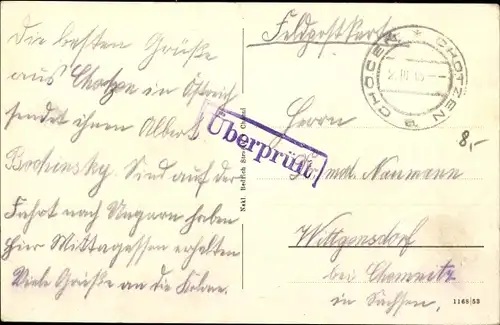 Die besten Grüße
aus Chotzen in Östreich
sendet ihnen Albert
Sind auf der
Fahrt nach Ungarn haben
Hier Mittagessen erhalten
Viele Grüße an die
Nakl. Bedřich
Feldpostkarte
CHOCEŇ * CHOTZEN
a
8,-
Überprüft
Herrn
Dr. med. Naumann
Wittgensdorf
bei Chemnitz
in Sachsen,
1168 53